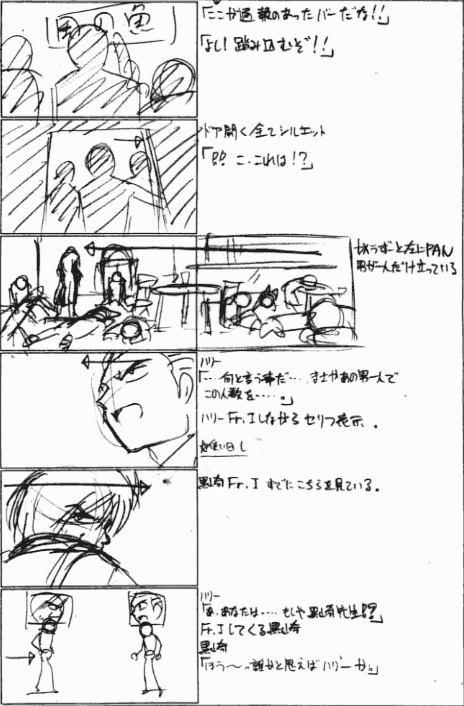 魚
「ここが通報のあったバーだな!!」
「よし!踏み込むぞ!!」
ドア開く全てシルエット
「!? こ、これは!?」
ゆっくり左にPAN
男が一人だけ立っている
ハリー
「…何と言う事だ… まさかあの男一人で
この人数を……。」
ハリー Fr.Iしながる セリフ表示.
黒崎 Fr.I すでにこちらを見ている.
ハリー
「あ、あなたは…… もしや黒崎先生!?」
Fr.Iしてくる黒崎
黒崎
「ほう〜。誰かと思えばハリーか。」